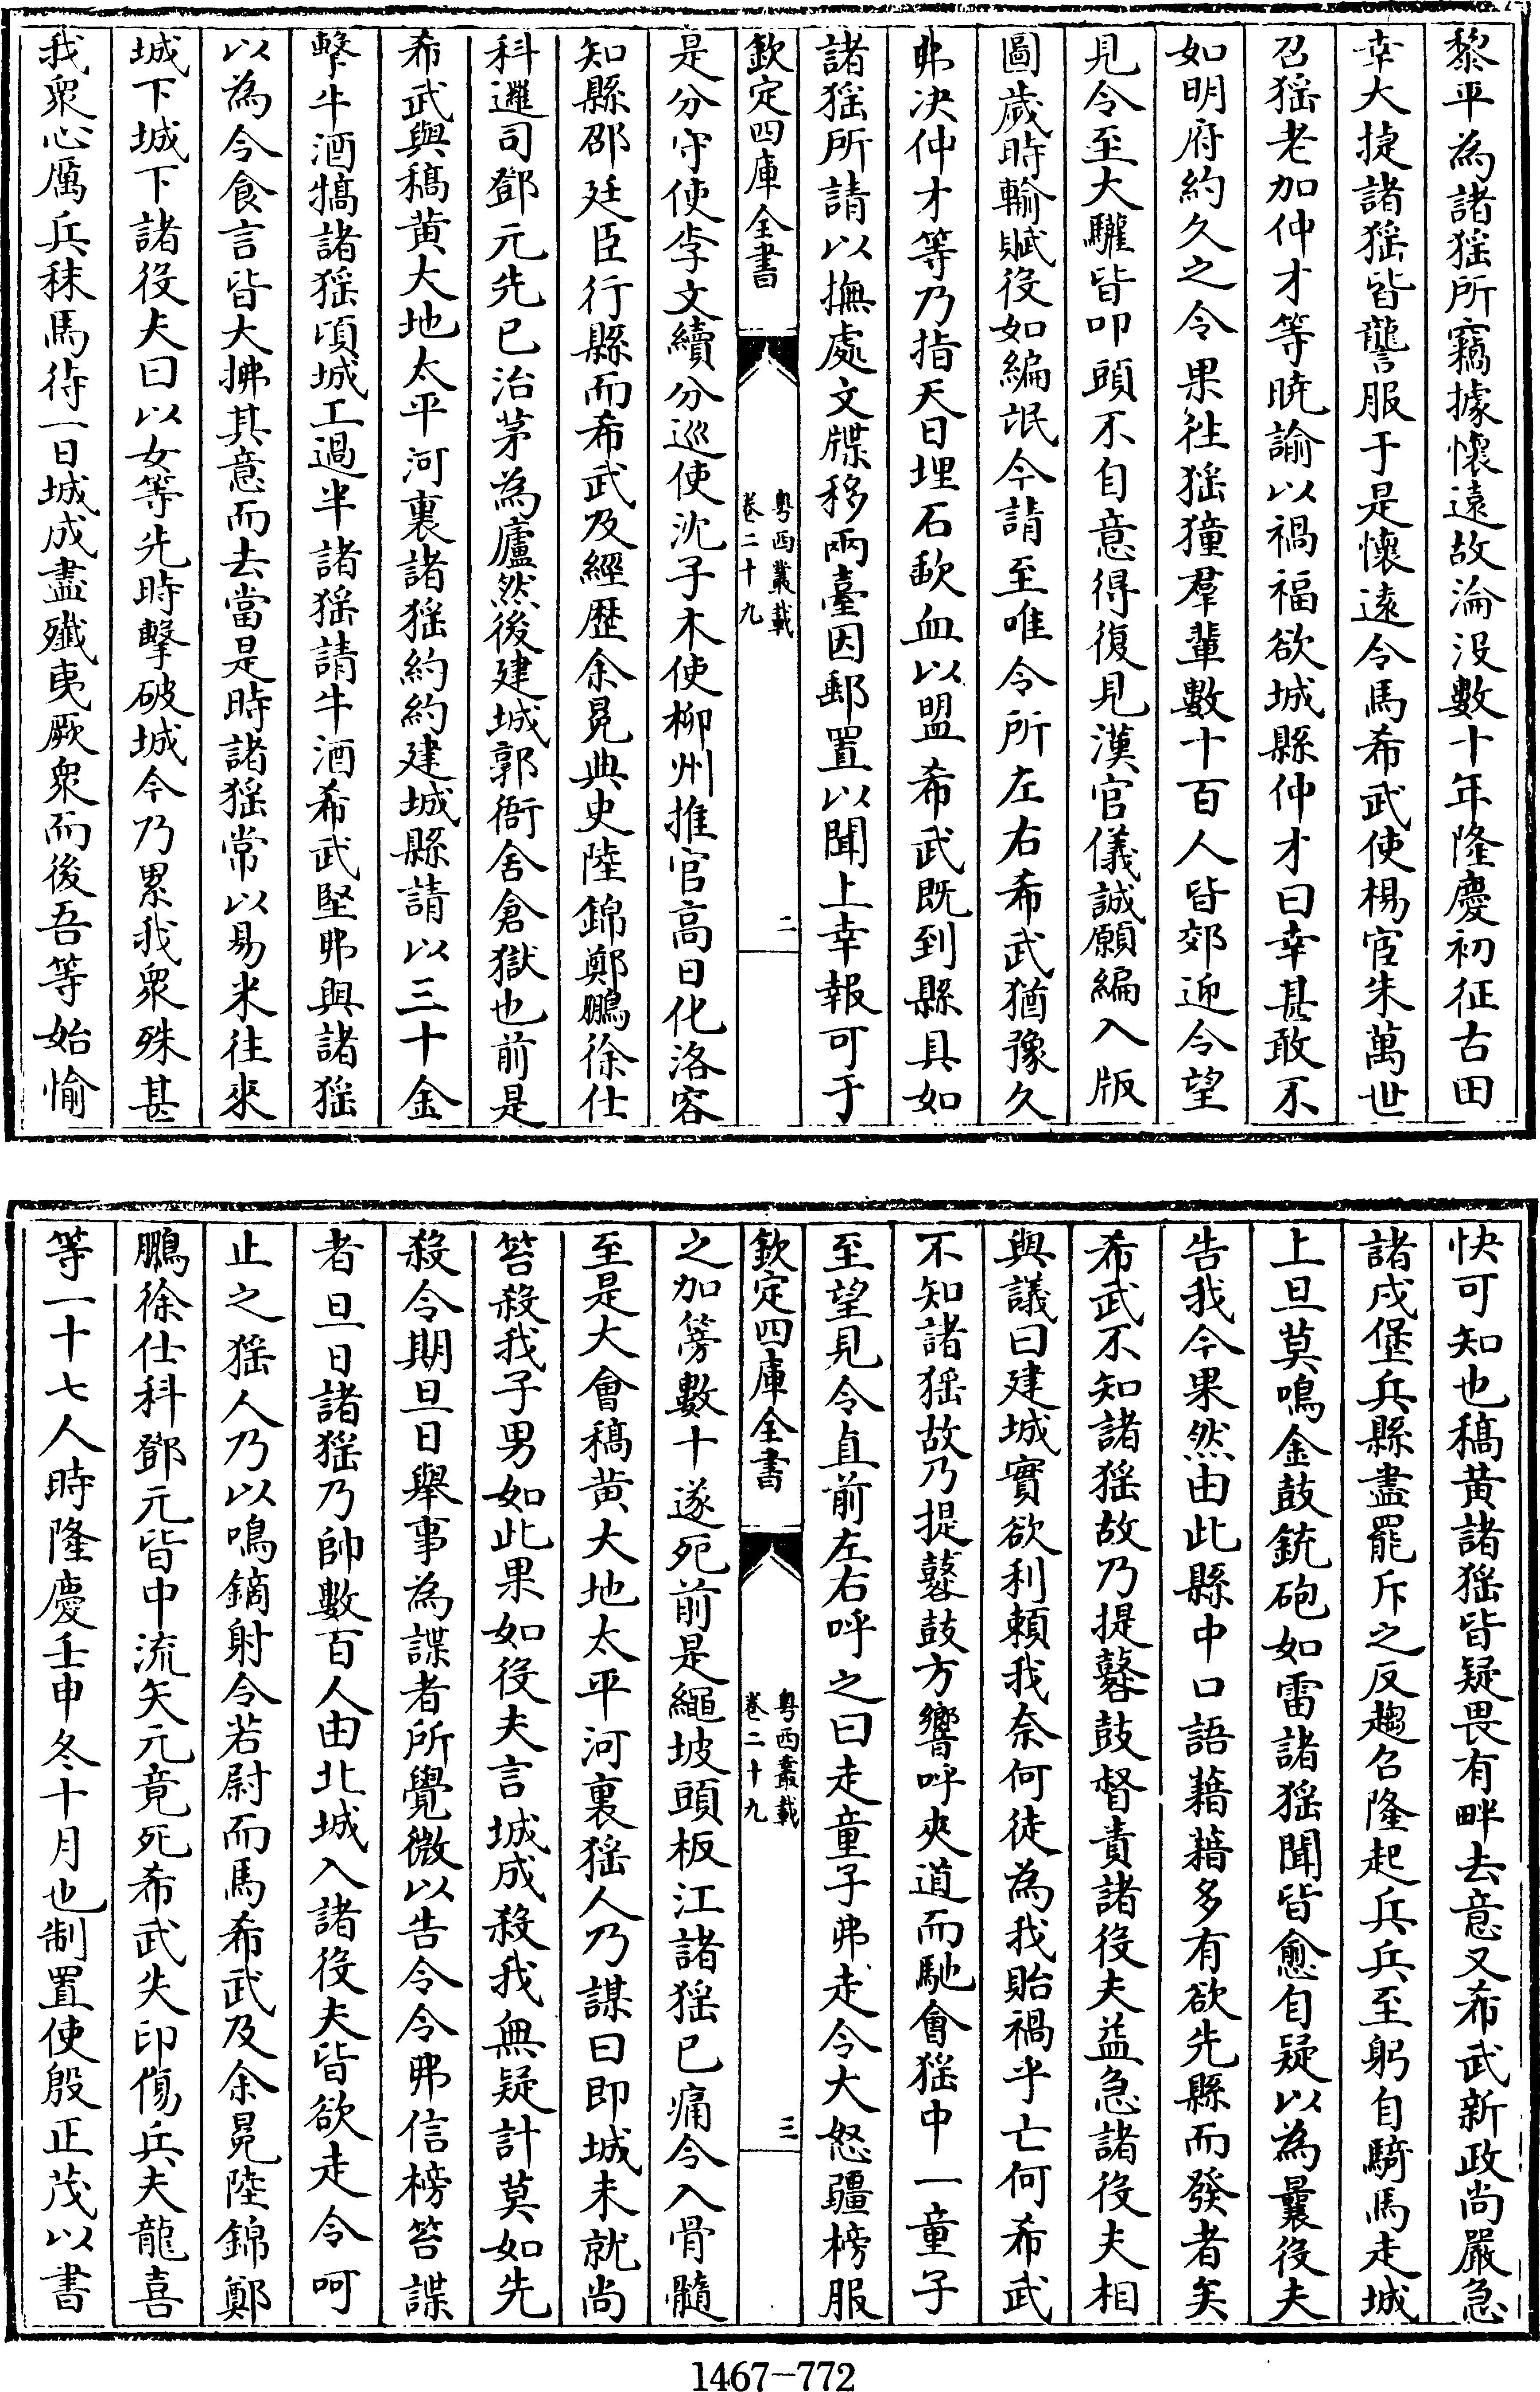 黎平為諸猺所竊據懷遠故淪没數十年隆慶初征古田
幸大捷諸猺皆讋服于是懷遠令馬希武使楊宦朱萬世
召猺老加仲才等曉諭以禍福欲城縣仲才曰幸甚敢不
如明府約久之令果往猺獞羣輩數十百人皆郊迎令望
見令至大驩皆叩頭不自意得復見漢官儀誠願編入版
圖歲時輸賦役如編氓今請至唯令所左右希武猶豫久
弗决仲才等乃指天日埋石歃血以盟希武既到縣具如
諸猺所請以撫處文牒移兩臺因郵置以聞上幸報可于
欽定四庫全書
粤西叢載
卷二十九
二
是分守使李文續分巡使沈子木使柳州推官高日化洛容
知縣邵廷臣行縣而希武及經歴余晃典史陸錦鄭鵬徐仕
科邏司鄧元先已治茅為廬然後建城郭衙舍倉獄也前是
希武與稿黄大地太平河裏諸猺約約建城縣請以三十金
擊牛酒犒諸猺頃城工過半諸猺請牛酒希武堅弗與諸猺
以為令食言皆大拂其意而去當是時諸猺常以易米往來
城下城下諸役夫曰以女等先時擊破城今乃累我衆殊甚
我衆心厲兵秣馬待一日城成盡殲夷厥衆而後吾等始愉
快可知也稿黄諸猺皆疑畏有畔去意又希武新政尚嚴急
諸戍堡兵縣盡罷斥之反趨召隆起兵兵至躬自騎馬走城
上旦莫鳴金鼓銃砲如雷諸猺聞皆愈自疑以為曩役夫
告我今果然由此縣中口語藉藉多有欲先縣而發者矣
希武不知諸猺故乃提鼛鼓督責諸役夫益急諸役夫相
與議曰建城實欲利頼我奈何徒為我貽禍乎亡何希武
不知諸猺故乃提鼛鼓方響呼夾道而馳會猺中一童子
至望見令直前左右呼之曰走童子弗走令大怒疆榜服
欽定四庫全書
粤西叢載
卷二十九
三
之加篣數十遂死前是繩坡頭板江諸猺已痛令入骨髓
至是大會稿黄大地太平河裏猺人乃謀曰即城未就尚
笞殺我子男如此果如役夫言城成殺我無疑計莫如先
殺令期旦日舉事為諜者所覺微以告令令弗信榜笞諜
者旦日諸猺乃帥數百人由北城入諸役夫皆欲走令呵
止之猺人乃以鳴鏑射令若尉而馬希武及余晃陸錦鄭
鵬徐仕科鄧元皆中流矢元竟死希武失印傷兵夫龍喜
等一十七人時隆慶壬申冬十月也制置使殷正茂以書
1467-772